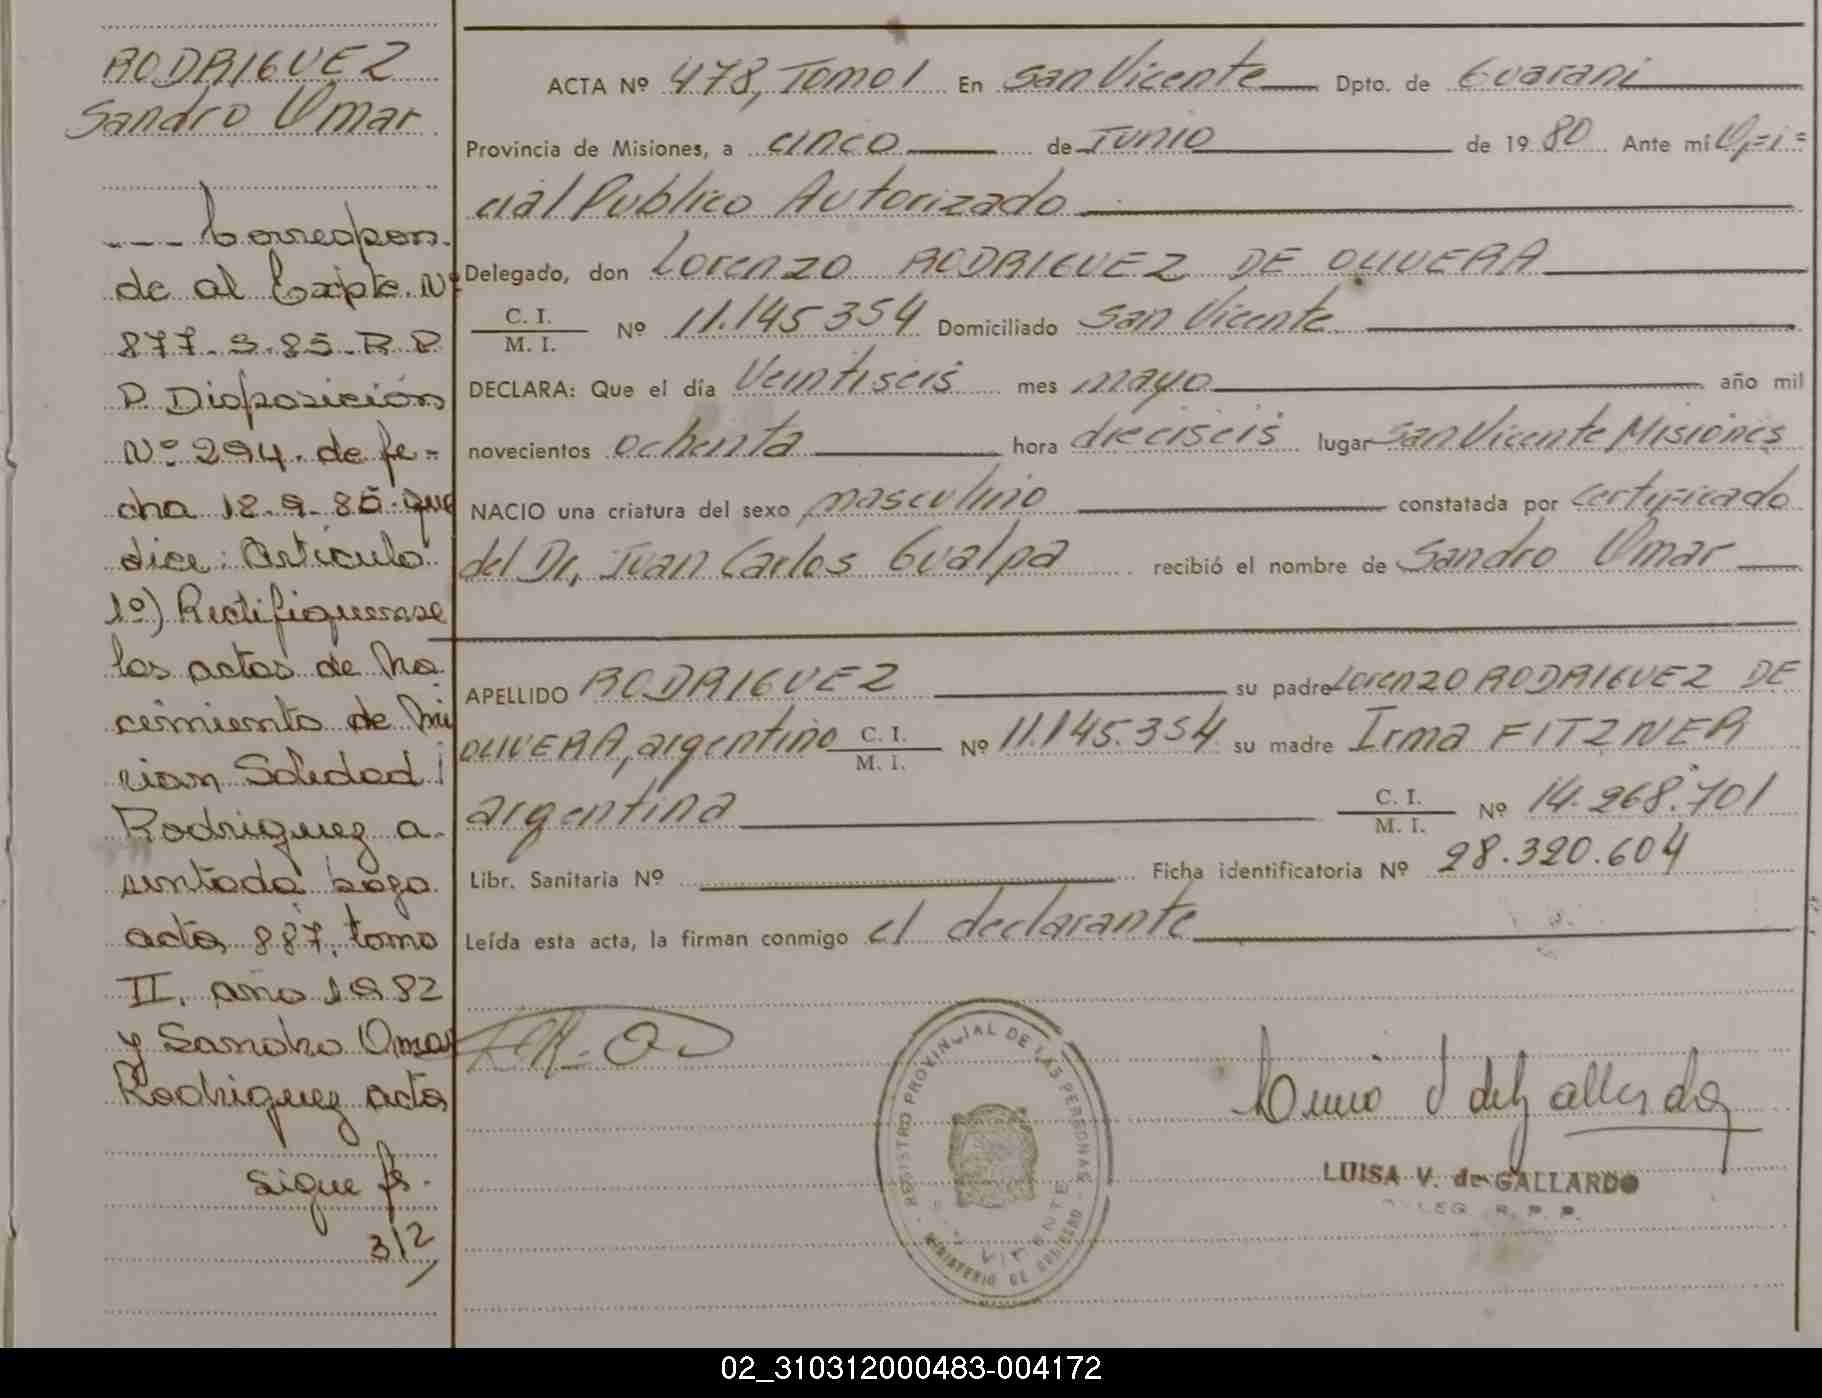 RODRIGUEZ
Sandro Omar
--- Correspon-
de al Expte. Nº
877-S-85-R.P.
P. Disposición
Nº 294. de fe-
cha 18-9-85. que
dice: Artículo
1º) Rectifiquense
las actas de Na
cimiento de Mi
rian Soledad
Rodriguez a-
sentada bajo
acta 887, tomo
II, año 1982
y Sandro Omar
Rodriguez acta
sigue fs.
312
ACTA Nº 478, Tomo I En San Vicente Dpto. de Guarani
Provincia de Misiones, a cinco de Junio de 1980 Ante mí Ofi=
cial Publico Autorizado
Delegado, don Lorenzo RODRIGUEZ DE OLIVERA
C. I.
M. I. Nº 11.145354 Domiciliado San Vicente
DECLARA: Que el día Veintiseis mes mayo año mil
novecientos ochenta hora dieciseis lugar San Vicente Misiones
NACIO una criatura del sexo masculino constatada por certificado
del Dr. Juan Carlos Gualpa recibió el nombre de Sandro Omar
APELLIDO RODRIGUEZ su padre Lorenzo RODRIGUEZ DE
OLIVERA, argentino C. I. M. I. Nº 11.145.354 su madre Irma FITZNER
argentina C. I. M. I. Nº 14.268.701
Libr. Sanitaria Nº Ficha identificatoria Nº 28.320.604
Leída esta acta, la firman conmigo el declarante
REGISTRO PROVINCIAL DE LAS PERSONAS
MINISTERIO DE GOBIERNO
LUISA V. de GALLARDO
R. P. P.
02_310312000483-004172